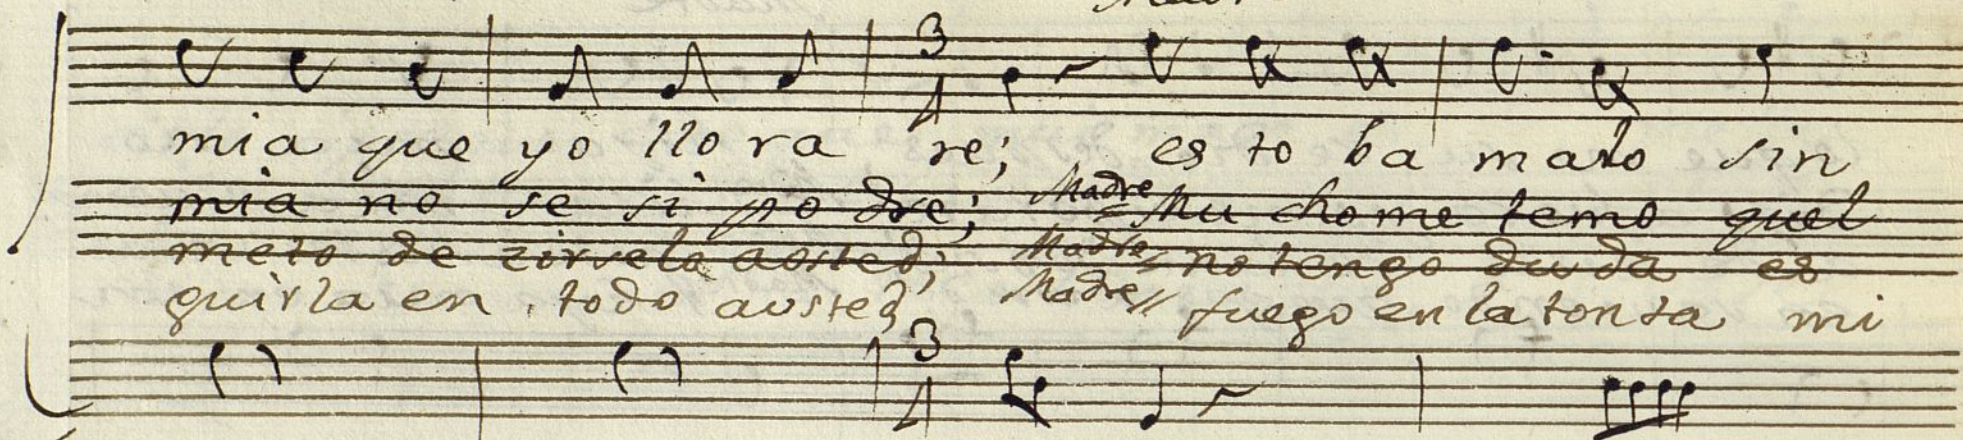 3
4
mia que yo llo ra re; es to ba malo sin
mia no se si po dre; Madre Mu cho me temo quel
meto de zirvelo aosted; Madre no tengo du da es
guirla en todo austed Madre fuego en la tonta mi
3
4